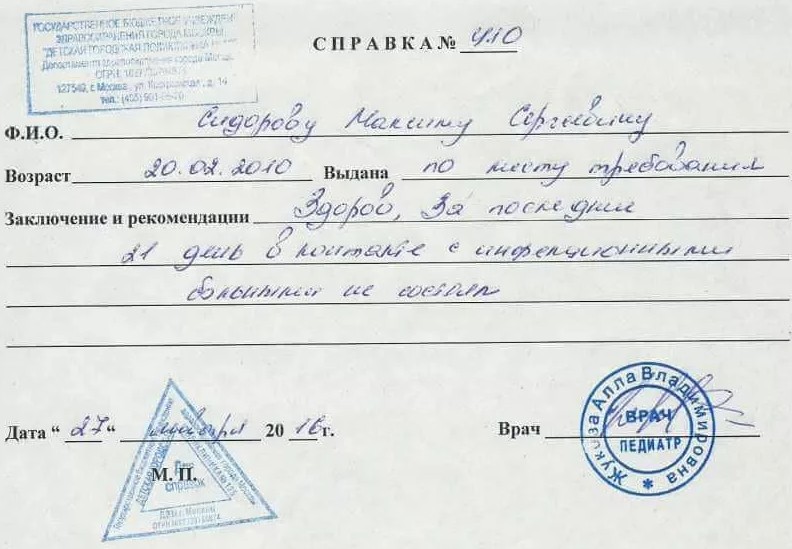 ГОСУДАРСТВЕННОЕ БЮДЖЕТНОЕ УЧРЕЖДЕНИЕ
ЗДРАВООХРАНЕНИЯ ГОРОДА МОСКВЫ
"ДЕТСКАЯ ГОРОДСКАЯ ПОЛИКЛИНИКА
Департамент здравоохранения города Москвы
ОГРН
127549, г. Москва, ул. д. 14
тел.: (495)
СПРАВКА № 410
Ф.И.О. Сидорову Максиму Сергеевичу
Возраст 20.02.2010 Выдана по месту требования
Заключение и рекомендации Здоров, За последние
21 день в контакте с инфекционными
больными не состоял
Дата “ 27 “ января 20 16 г.
Врач
М. П.
Для
справок
Жукоза Алла Владимировна
ВРАЧ
ПЕДИАТР